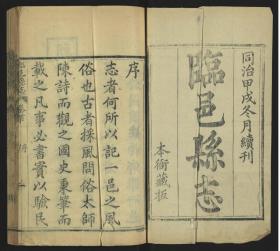 同治甲戌冬月續刊
臨邑縣志
本衙藏板
序
志者何所以記一邑之風
俗也古者採風問俗太師
陳詩而觀之國史秉筆而
載之凡事必書實以驗民